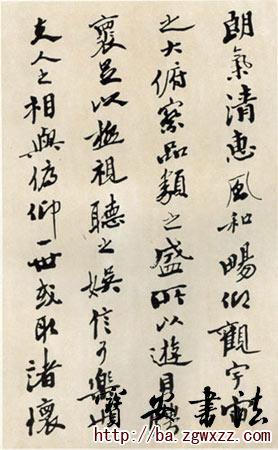 朗氣清惠風和暢仰觀宇宙
之大俯察品類之盛所以遊目騁
懷足以極視聽之娛信可樂也
夫人之相與俯仰一世或取諸懷
寶安書法
http://ba.zgwxzz.com